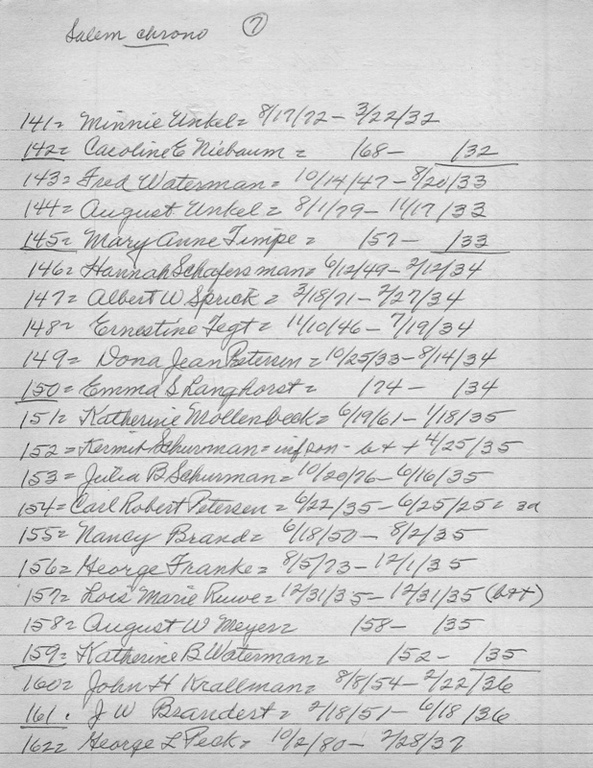 Salem chrono 7
141= Minnie Unkel= 8/17/72- 3/22/32
142= Caroline E Niebaum = /68- /32
143= Fred Waterman= 10/14/47- 8/20/33
144= August Unkel= 8/1/79- 11/17/33
145= Mary Anne Timpe= /57- /33
146= Hannah Schafersman= 6/12/49- 2/12/34
147= Albert W Sprick= 3/18/71- 2/27/34
148= Ernestine Tegt= 11/10/46- 7/19/34
149= Dona Jean Petersen=10/25/33-8/14/34
150= Emma S Langhorst= /74- /34
151= Katherine Mollenbeck= 6/19/61- 1/18/35
152= Kermit Schurman= inf son- b + + 4/25/35
153= Julia B Schurman= 10/20/76- 6/16/35
154= Carl Robert Petersen= 6/22/35-6/25/25= 3d
155= Nancy Brand= 6/18/50- 8/2/35
156= George Franke= 8/5/73- 12/1/35
157= Lois Marie Ruwe= 12/31/35- 12/31/35 (b++)
158= August W Meyer= /58- /35
159= Katherine B Waterman= /52- /35
160= John H Krallman= 8/8/54- 2/22/36
161. J W Brandert= 2/18/51- 6/18/36
162= George L Peck= 10/2/80- 2/28/37